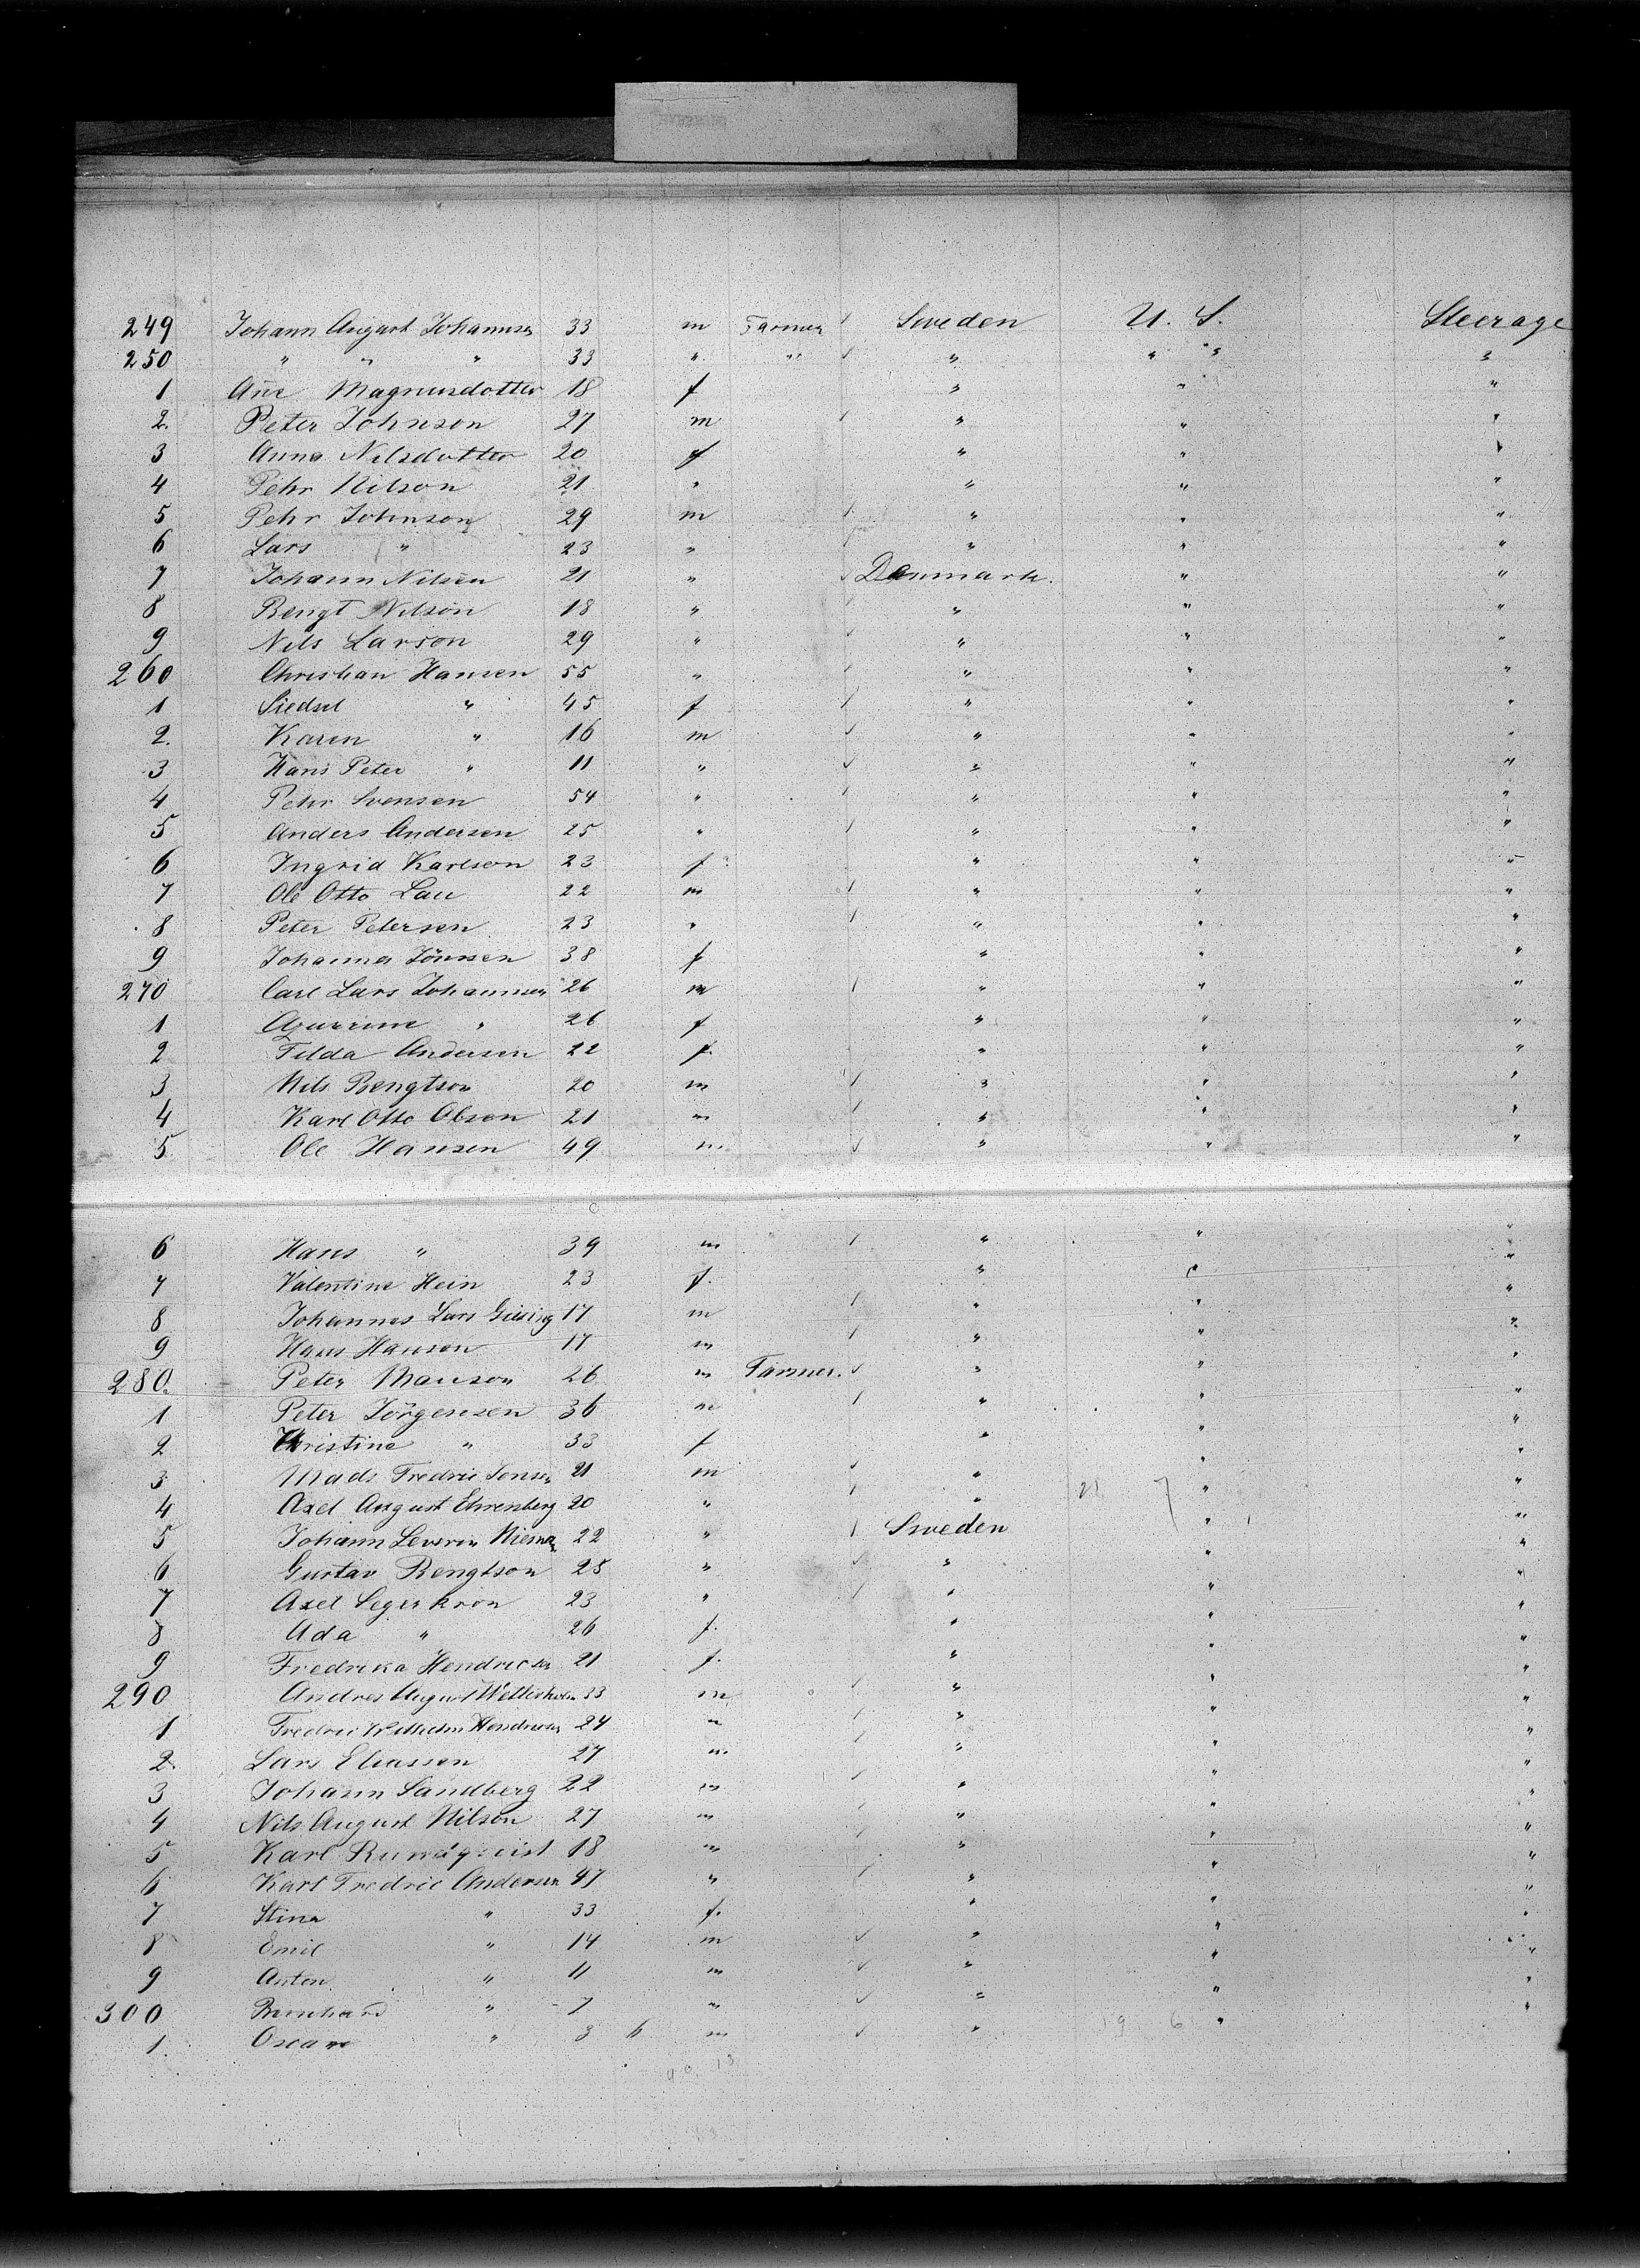 249 Johann August Johannsen 33 m Farmer Sweden U. S. Steerage
250 " " " 33 " " " " " "
1 Añe Magnusdotter 18 f " " "
2. Peter Johnson 27 m " " "
3 Anna Nilsdotter 20 f " " "
4 Pehr Nilson 21 " " " "
5 Pehr Johnson 29 m " " "
6 Lars " 23 " " " "
7 Johann Nilsen 21 " Danmark. " "
8 Bengt Nilson 18 " " " "
9 Nils Larson 29 " " " "
260 Christian Hansen 55 " " " "
1 Siedsel " 45 f " " "
2. Karen " 16 m " " "
3 Hans Peter " 11 " " " "
4 Pehr Svensen 54 " " " "
5 Anders Andersen 25 " " " "
6 Ingrid Karlson 23 f " " "
7 Ole Otto Lau 22 m " " "
8 Peter Petersen 23 " " " "
9 Johanna Jönssen 38 f " " "
270 Carl Lars Johannsen 26 m " " "
1 " 26 f " " "
2 Tilda Andersen 22 f. " " "
3 Nils Bengtson 20 m " " "
4 Karl Otto Olsen 21 m " " "
5 Ole Hansen 49 m. " " "
6 Hans " 39 m " " "
7 Valentine Hein 23 f. " " "
8 Johannes Lars 17 m " " "
9 Hans Hanson 17 m " " "
280. Peter Manson 26 m Farmer. " " "
1 Peter Jörgensen 36 m " " "
2 Christine " 33 f " " "
3 Mads Fredric Jensen 21 m " " "
4 Axel August Ehrenberg 20 " " 21 7 " "
5 Johann 22 " Sweden " "
6 Gustav Bengtson 25 " " " "
7 Axel Segerkron 23 " " " "
8 Ada " 26 f. " " "
9 Fredrika Hendricsen 21 f. " " "
290 Andres August Wetterholm 33 m " " "
1 Fredric Wilhelm Hendricsen 24 m " " "
2. Lars Eliassen 27 m. " " "
3 Johann Sandberg 22 m " " "
4 Nils August Nilson 27 m " " "
5 Karl Rundqvist 18 m " " "
6 Karl Fredric Andersen 47 " " " "
7 Stina " 33 f. " " "
8 Emil " 14 m " " "
9 Anton " 11 m " " "
300 Bernhard " 7 " " " "
1. Oscar " 3 6 m " 19 6 "
90 13